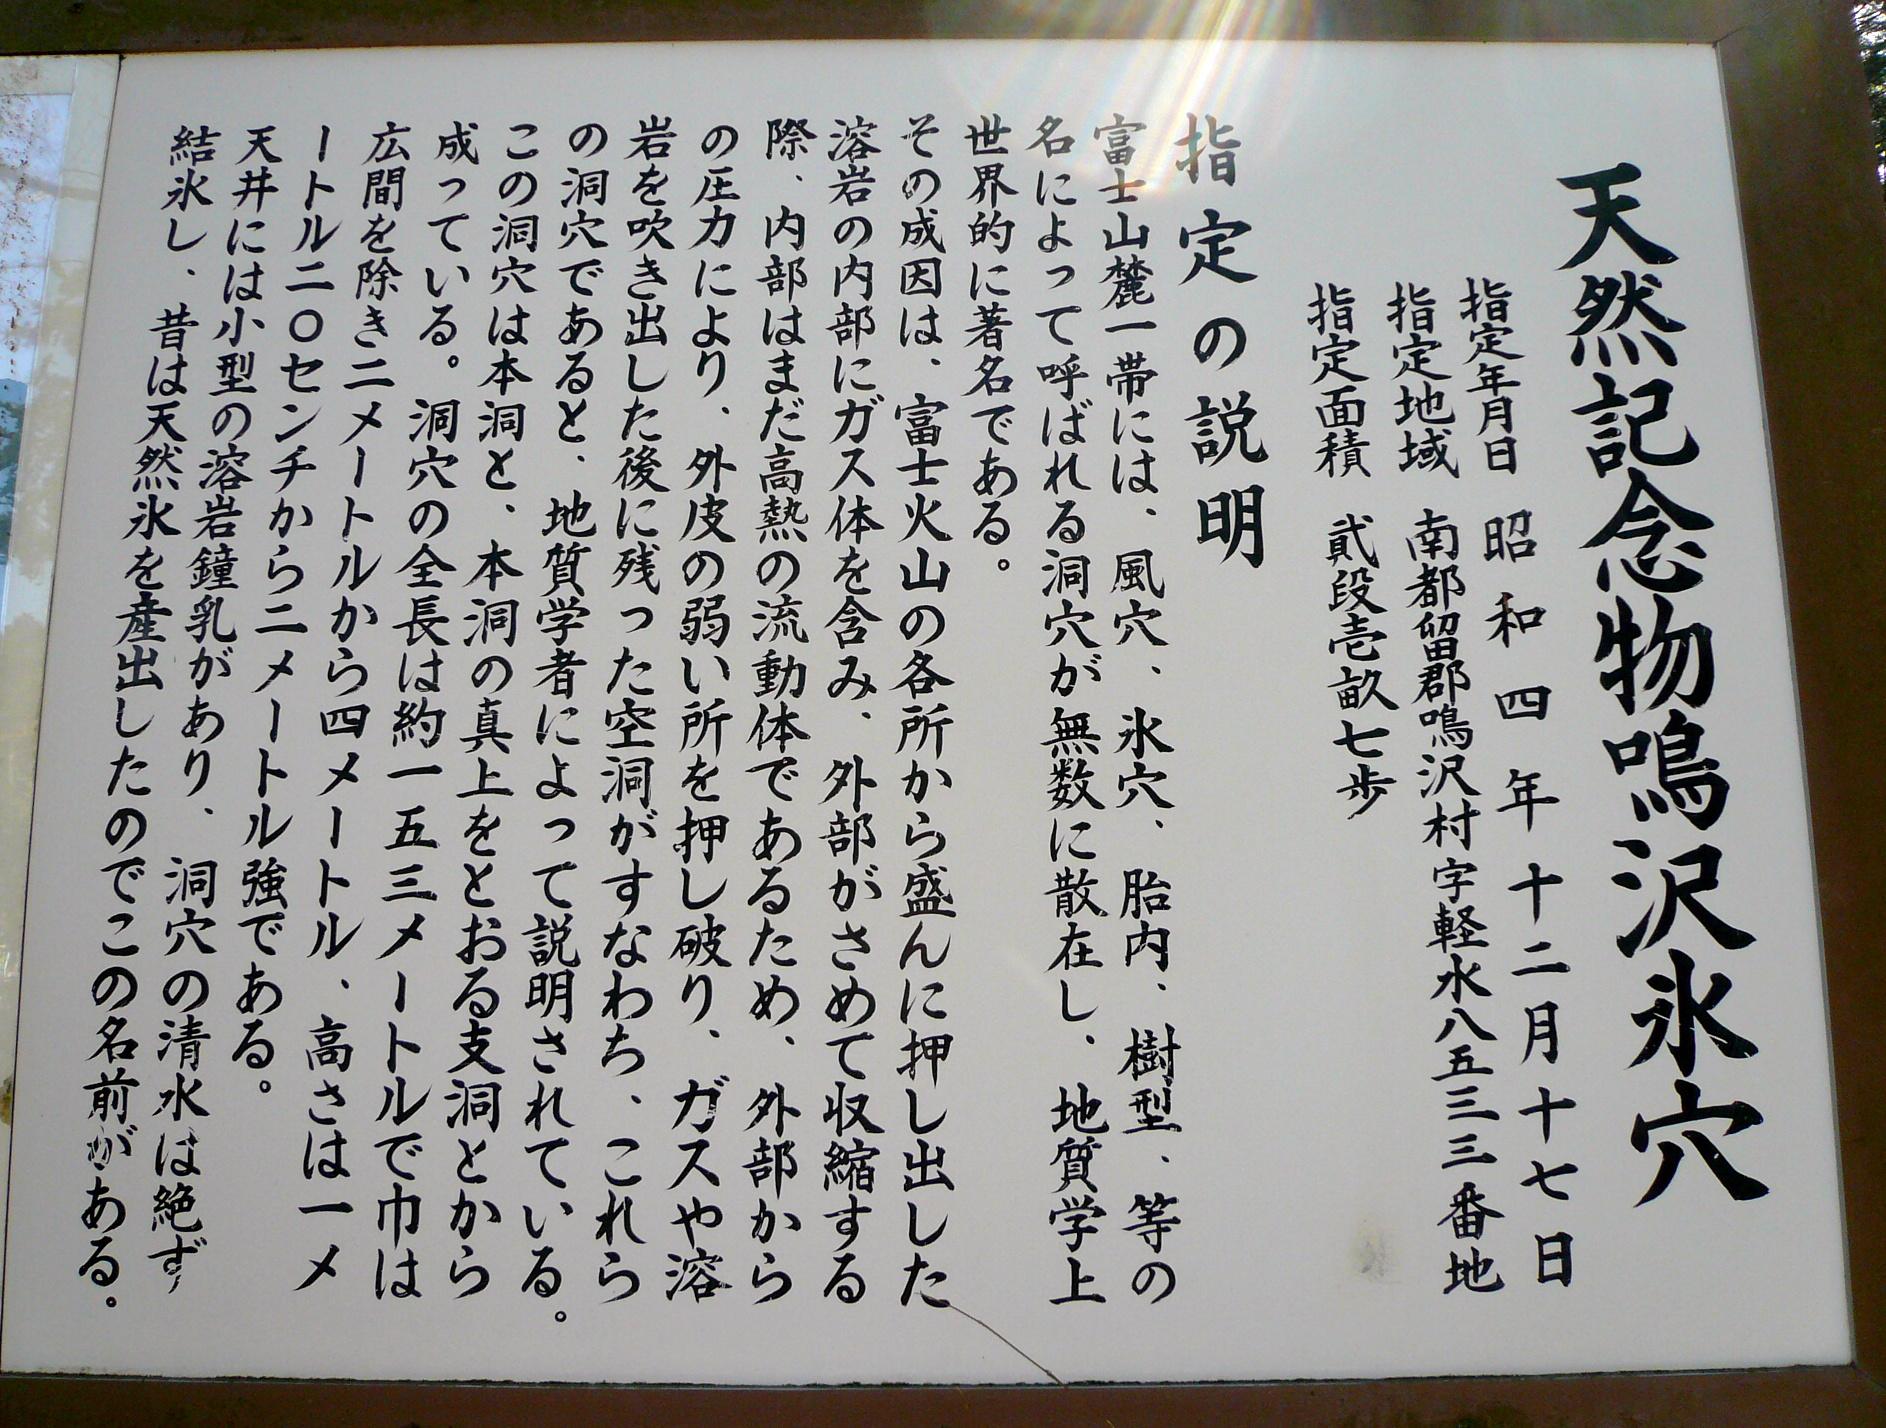 天然記念物鳴沢氷穴
指定年月日 昭和四年十二月十七日
指定地域 南都留郡鳴沢村字軽水八五三三番地
指定面積 貳段壱畝七歩
指定の説明
富士山麓一帯には、風穴、氷穴、胎内、樹型、等の
名によって呼ばれる洞穴が無数に散在し、地質学上
世界的に著名である。
その成因は、富士火山の各所から盛んに押し出した
溶岩の内部にガス体を含み、外部がさめて収縮する
際、内部はまだ高熱の流動体であるため、外部から
の圧力により、外皮の弱い所を押し破り、ガスや溶
岩を吹き出した後に残った空洞がすなわち、これら
の洞穴であると、地質学者によって説明されている。
この洞穴は本洞と、本洞の真上をとおる支洞とから
成っている。洞穴の全長は約一五三メートルで巾は
広間を除き二メートルから四メートル、高さは一メ
ートル二〇センチから二メートル強である。
天井には小型の溶岩鐘乳があり、洞穴の清水は絶ず
結氷し、昔は天然氷を産出したのでこの名前がある。